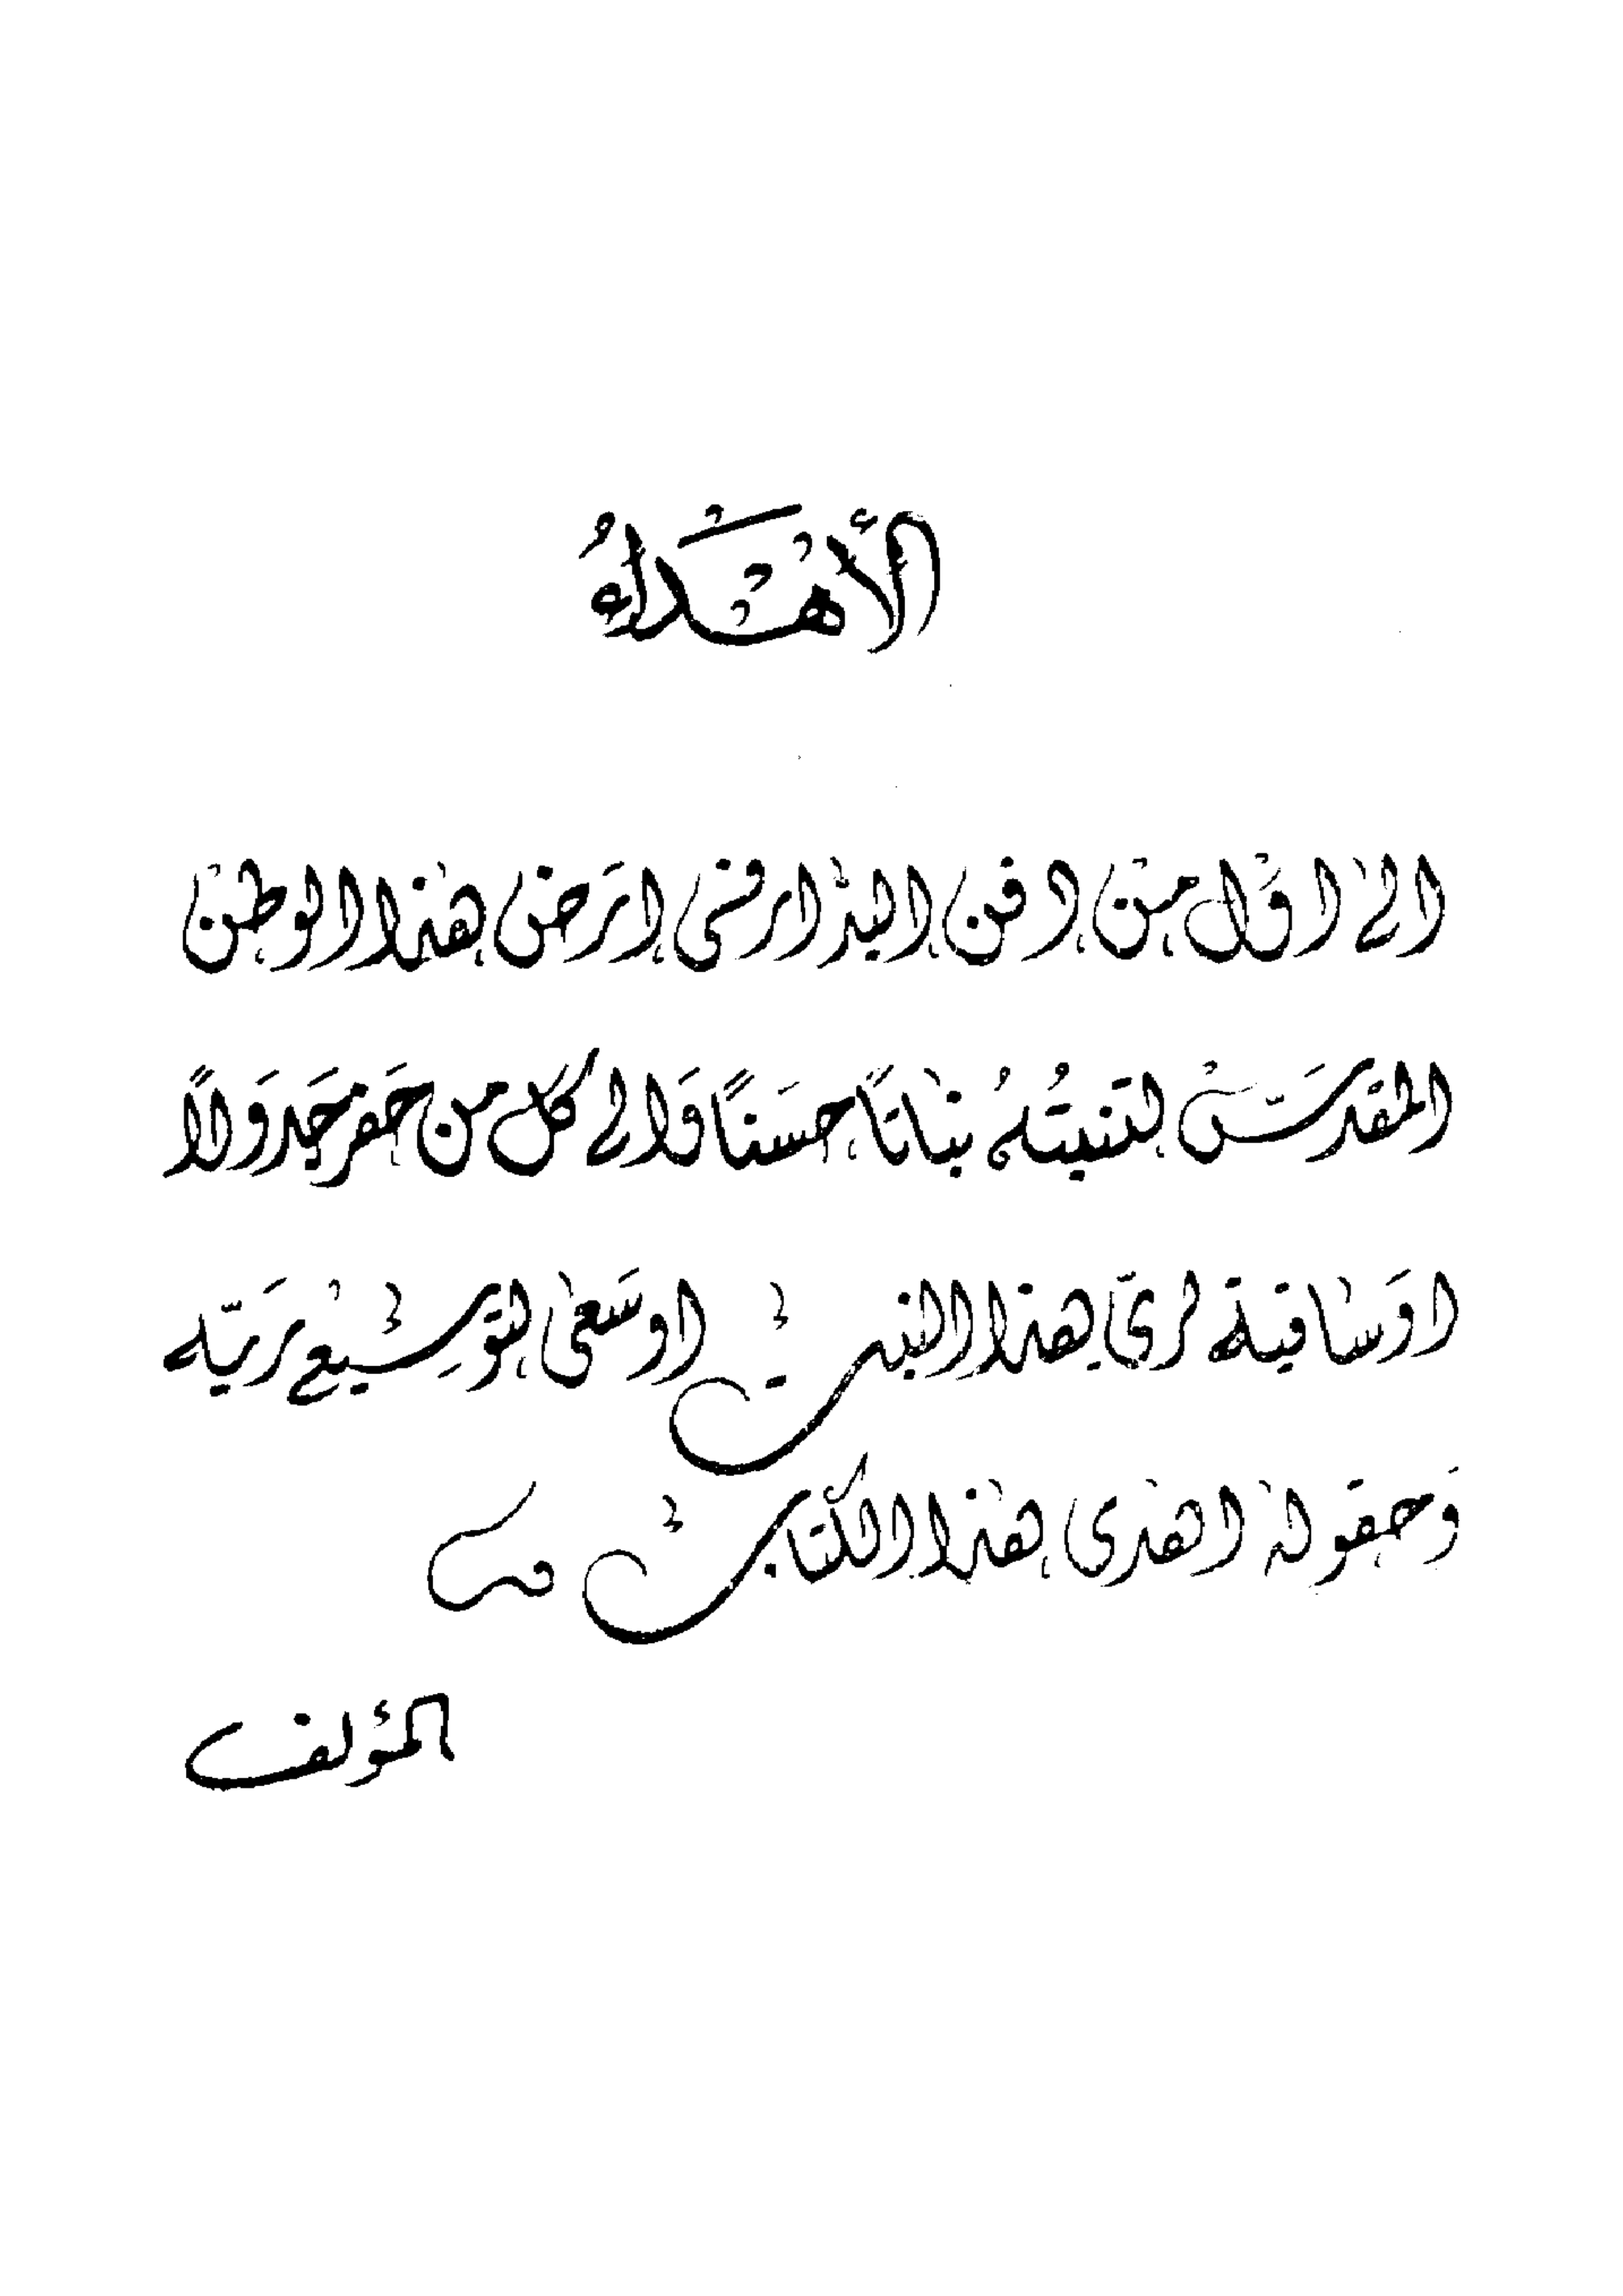 الأهداء
الى اول من دفن البذار في ارض هذا الوطن
المقدس لتنبته نباتاً حسناً والى كل من حفر جدولاً
او ساقية لري هذا النبت او سعى لتوسيع ريه
وحقوله اهدي هذا الكتاب
المؤلف